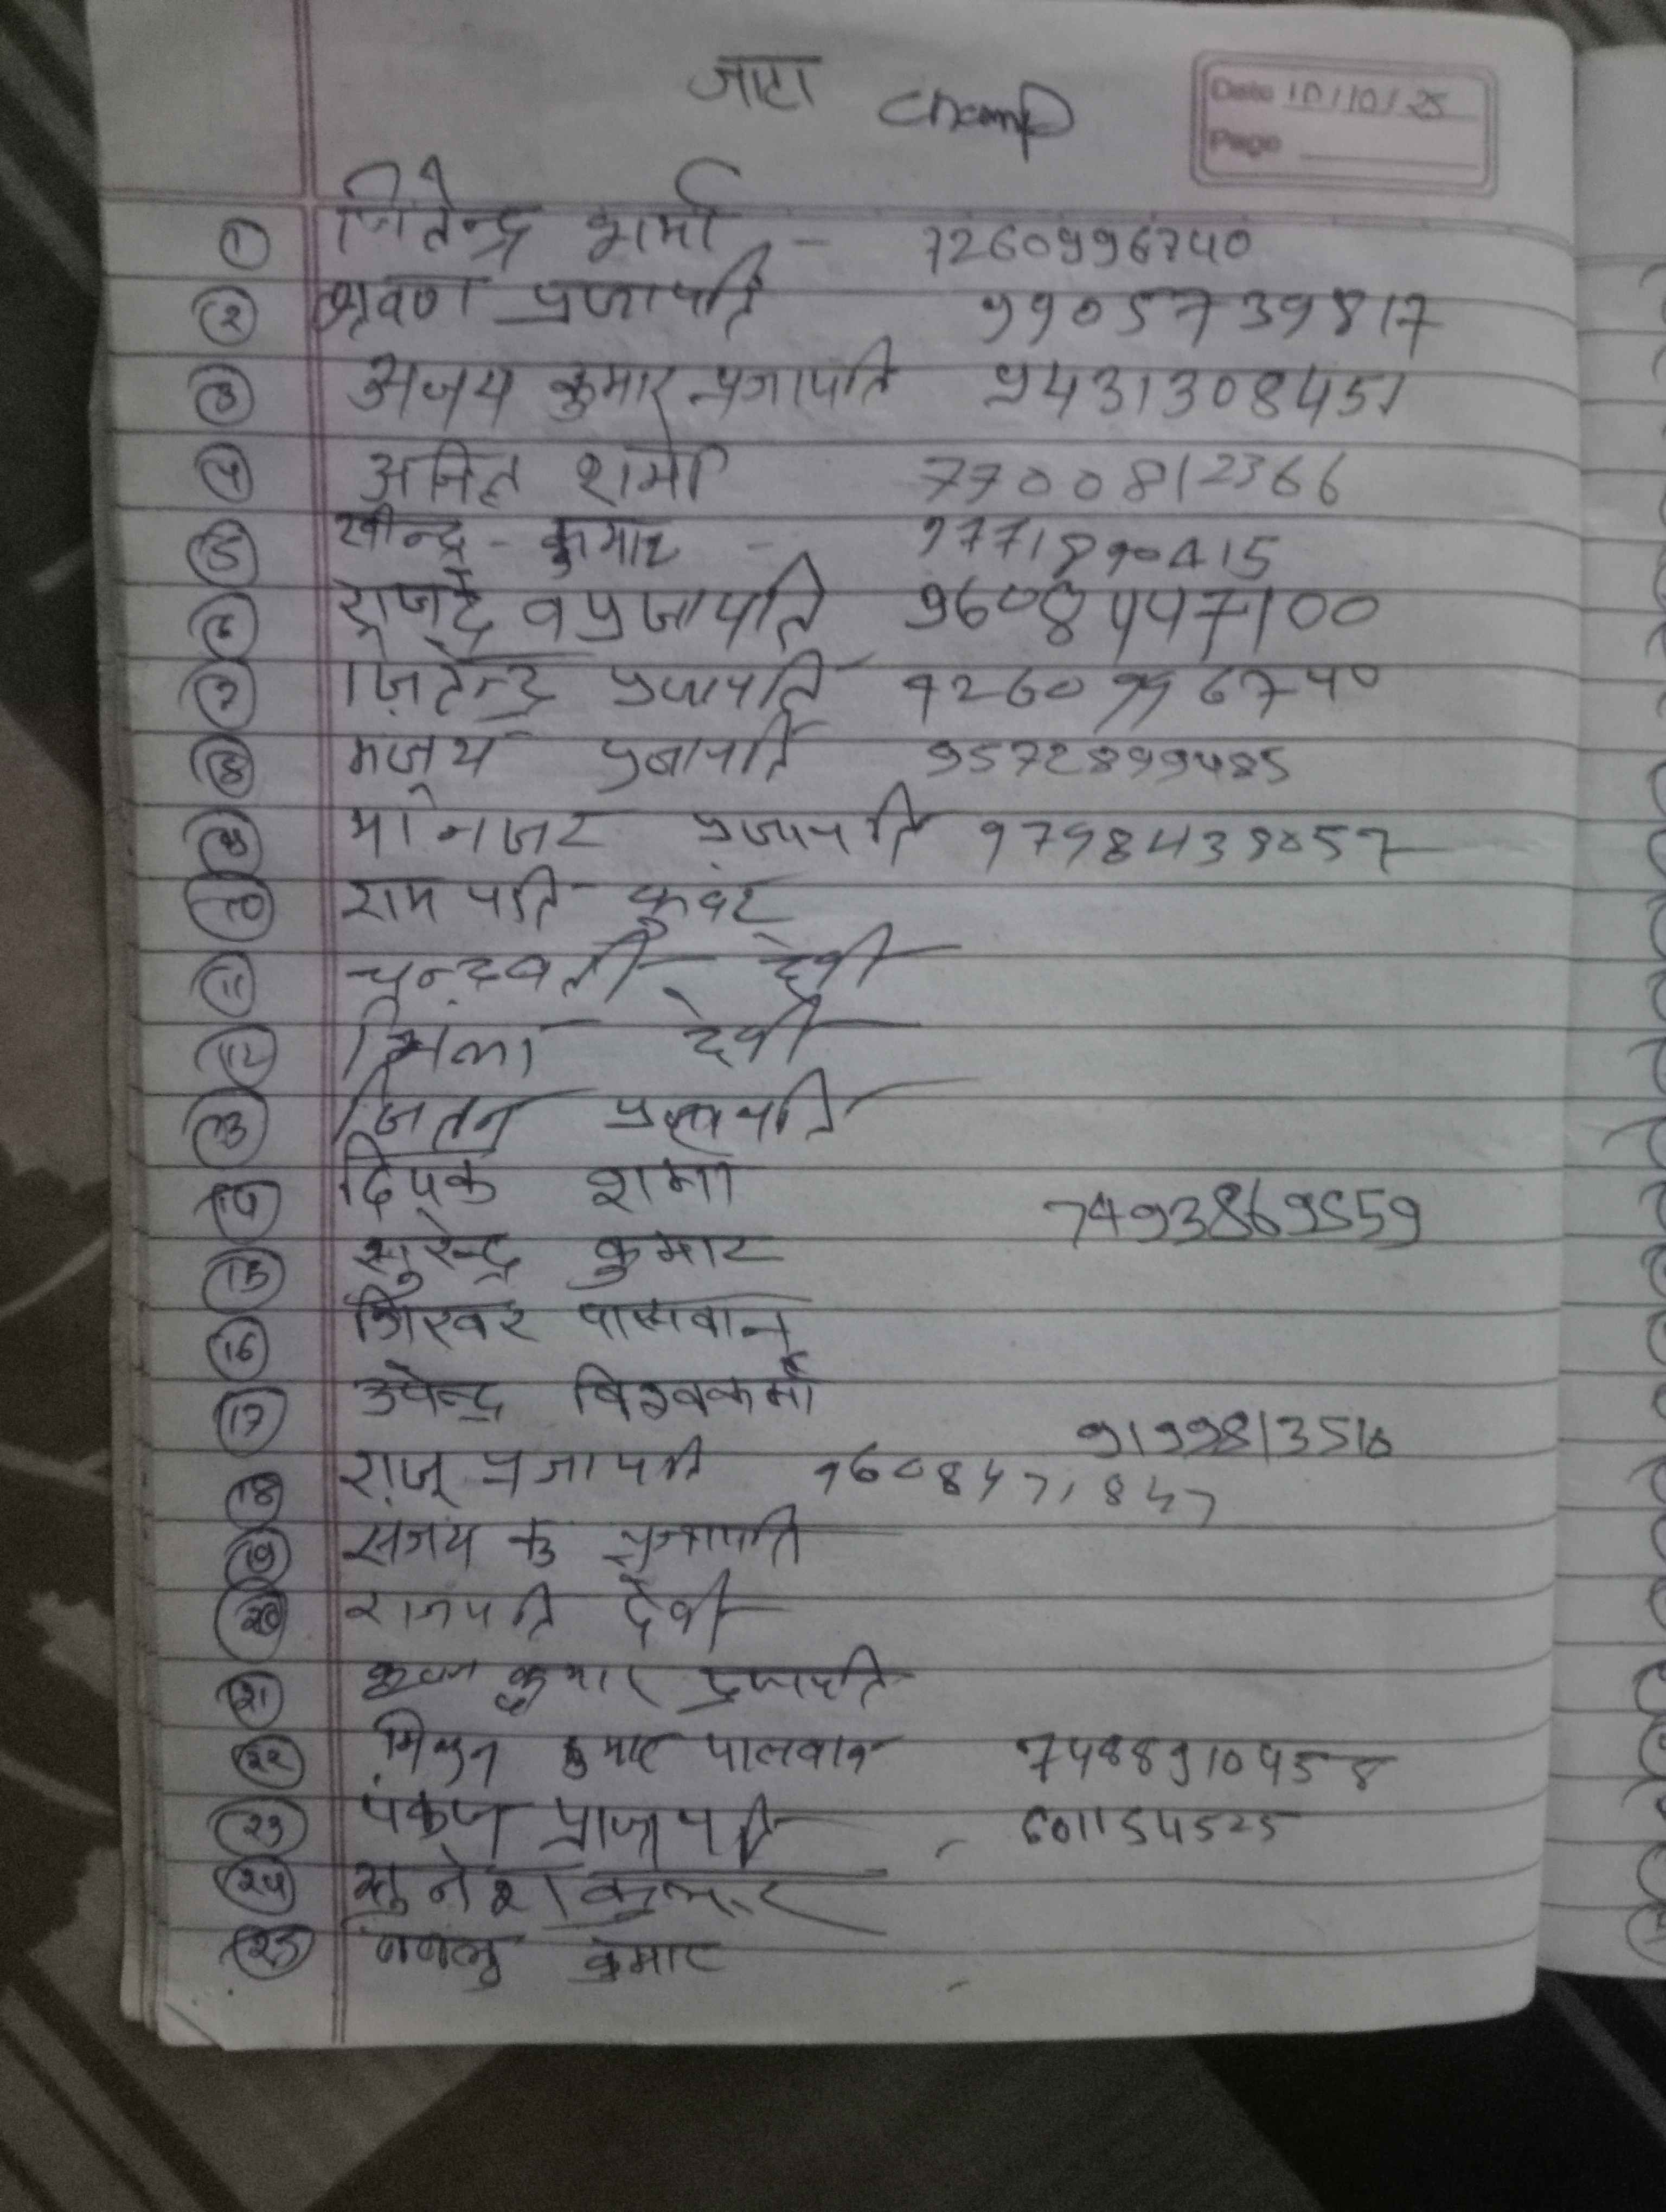 जाटा Champ
Date 10/10/25
Page
① जितेन्द्र शर्मा - 7260996740
② श्रवण प्रजापति 9905739817
③ अजय कुमार प्रजापति 9431308451
④ अनिल शर्मा 7700812366
⑤ रवीन्द्र - कुमार - 9771890415
⑥ राजदेव प्रजापति
⑦ जितेन्द्र प्रजापति 7260996740
⑧ प्रजापति 9572899485
⑨ प्रजापति
⑩ राम पति कुवर
⑪ चन्द्रवती देवी
⑫ देवी
⑬ जितन
⑭ दिपक शर्मा 7493869559
⑮ सुरेन्द्र कुमार
⑯ गिरवर पासवान
⑰ उपेन्द्र विश्वकर्मा
⑱ राजू प्रजापति 9608471847
⑲ संजय कु प्रजापति
⑳ राजपति देवी
㉑ कुमार प्रजापति
㉒ कुमार 7488910458
㉓ पंकज प्राजापति - 601154525
㉔ कुमार
㉕ कुमार